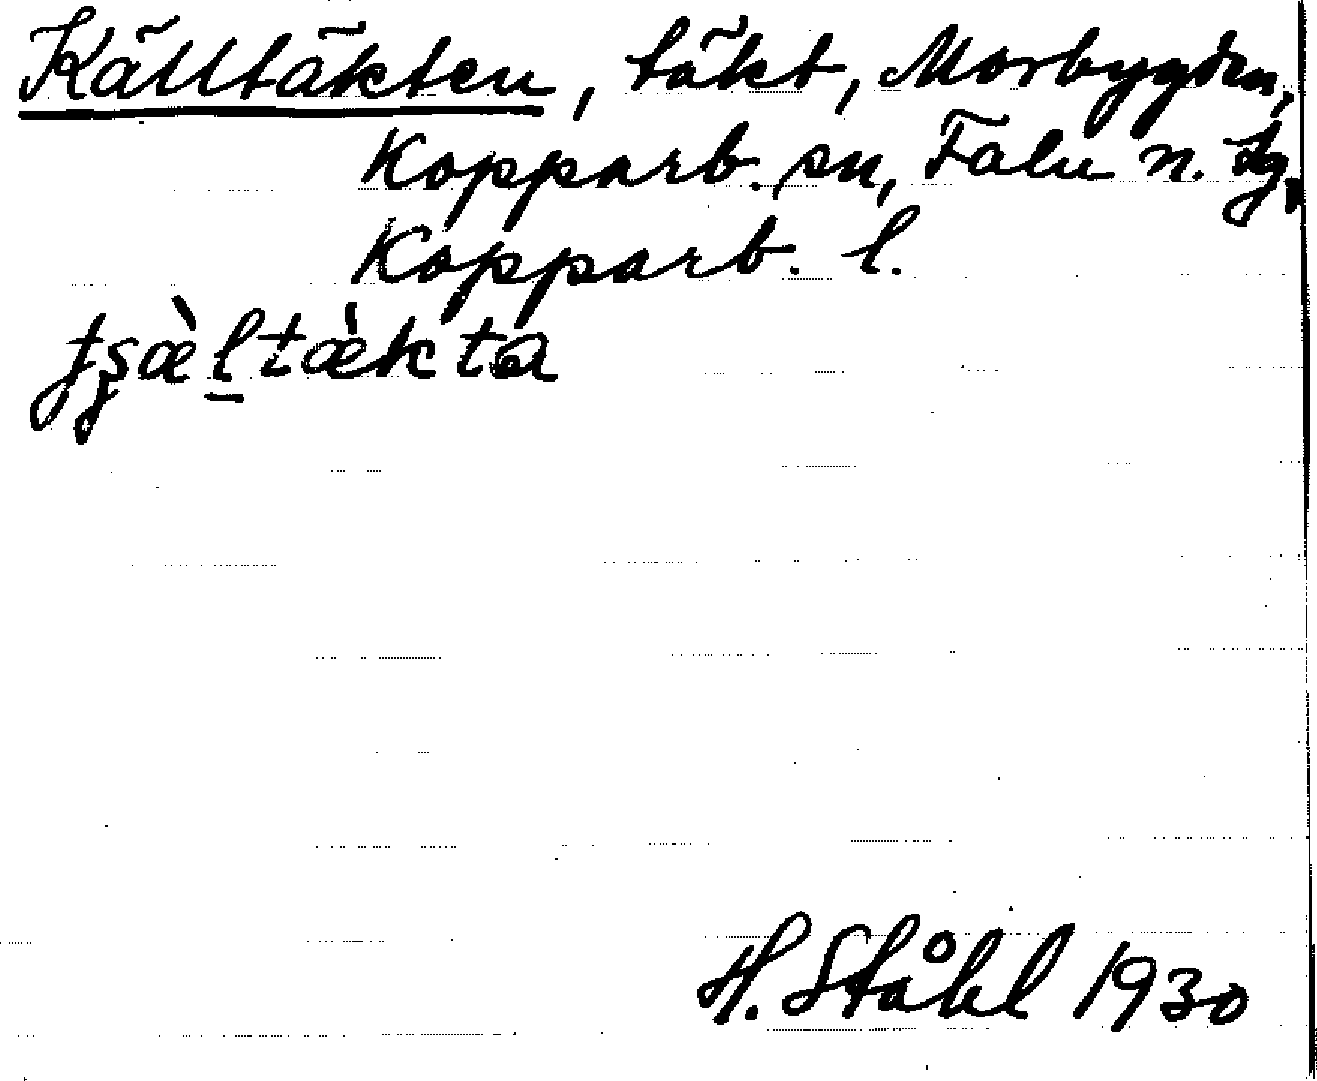 Källtäkten, täkt, Morbygden,
Kopparb. sn, Falu n. tg,
Kopparb. l.
tʂæ̀l̠tæ̀kta
H. Ståhl 1930